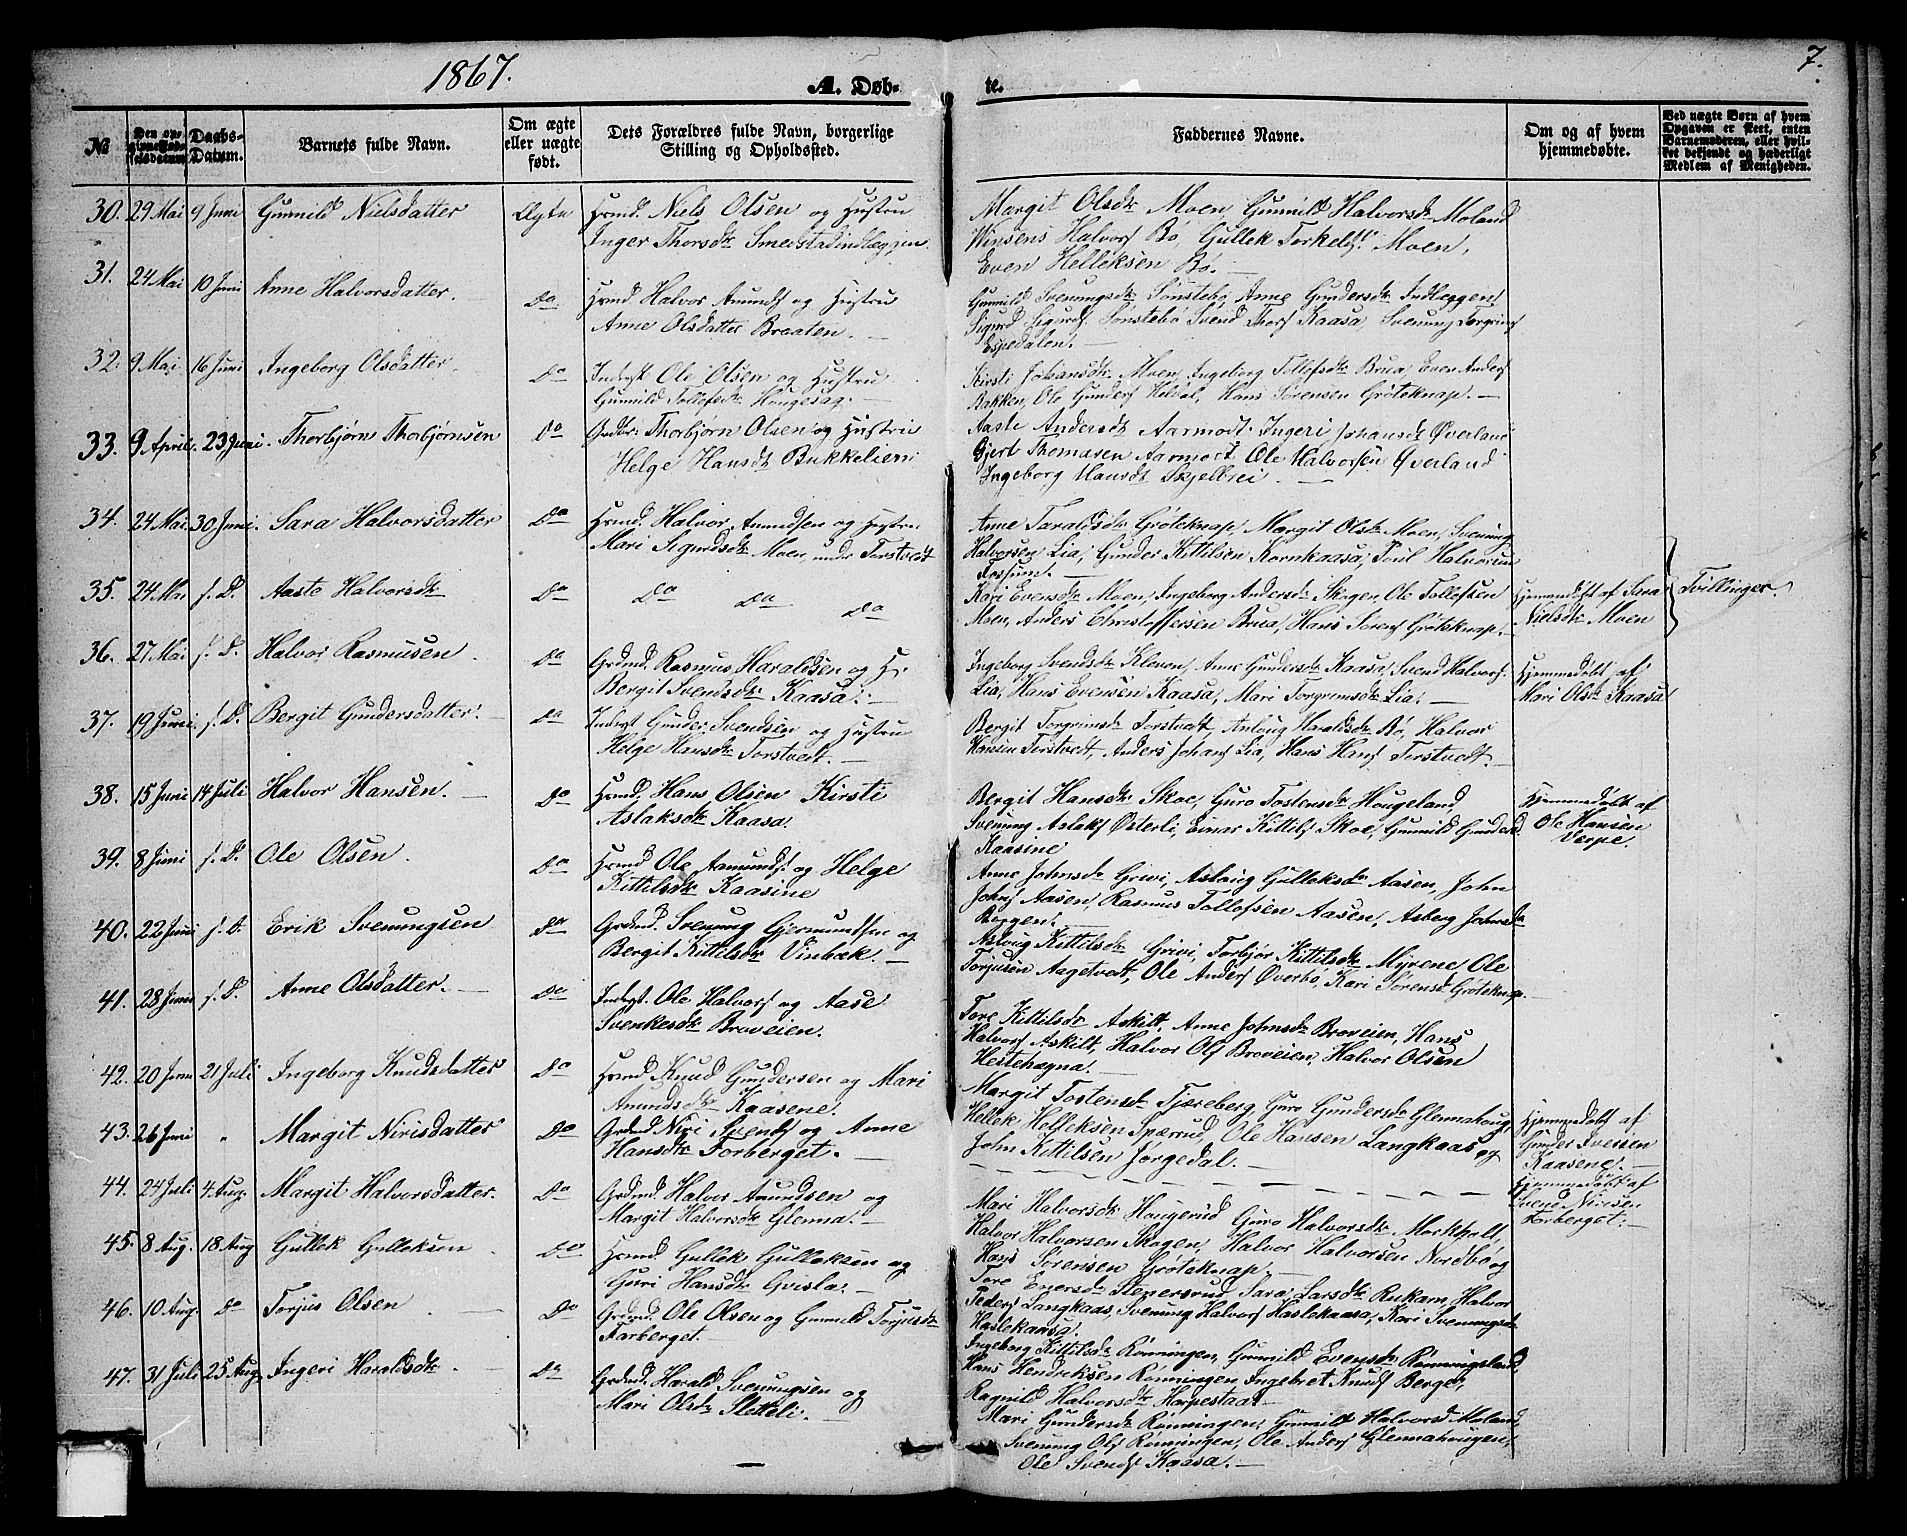 1867.
A. Døb-
te.
7.
№
Den op-
givne Fød-
selsdatum
Daabs-
Datum.
Barnets fulde Navn.
Om ægte
eller uægte
født.
Dets Forældres fulde Navn, borgerlige
Stilling og Opholdssted.
Faddernes Navne.
Om og af hvem
hjemmedøbte.
Ved uægte Børn af hvem
Opgaven er skeet, enten
Barnemoderen, eller hvil-
ket bekjendt og hæderligt
Medlem af Menigheden.
30. 29 Mai 9 Juni Gunnild Nielsdatter Ægte Hsmd. Niels Olsen og Hustru
Inger Thorsdtr Smedstadindlæggjen
Margit Olsdtr Moen, Gunnild Halvorsd Moland
Halvors Bø, Gullek Torkels. Moen,
Even Helleksen Bø.
31. 24 Mai 10 Juni Anne Halvorsdatter. Do. Hsmd Halvor Amunds og Hustru
Anne Olsdatter Braaten.
Gunnild Svenungsdtr Sønstebø, Anne Gundersdtr Indlæggen,
Sigurd Sigurds. Sønstebø Svend Thors Kaasa, Svenung Torgrims
Espedalen.
32. 9 Mai 16 Juni Ingeborg Olsdatter. Do Inderst Ole Olsen og Hustru
Gunnild Tollefsdtr Hougesag.
Kirsti Johansdtr Moen, Ingeborg Tollofsdtr Brua, Even Anders
Bakken, Ole Gunders Heldal, Hans Sørensen Grøteknap.
33. 9 April. 23 Juni. Thorbjørn Thorbjørnsen Do Grdbr. Thorbjørn Olsen og Hustru
Helge Hansdtr Bukkelien
Aaste Andersdt Aarmodt. Ingeri Johansdt Øverland
Gjert Thomasen Aarmodt, Ole Halvorsen Øverland
Ingeborg Hansdt Skjelbrei.
34. 24 Mai. 30 Juni. Sara Halvorsdatter Do Hsmd. Halvor Amundsen og Hustru
Mari Sigurdsdtr Moen, under Torstvedt
Anne Taraldsdtr Grøteknap, Margit Olsdtr Moen, Svenung
Halvorsen Lia, Gunder Kittilsen Kornkaasa, Povl Halvorsen
Fossum.
35. 24 Mai s. D. Aaste Halvorsdtr Do Do Do Do
Kari Evensdtr Moen, Ingeborg Andersdtr Skogen, Ole Tollofsen
Moen, Anders Christoffersen Brua, Hans Sørens Grøteknap.
Hjemmedøbt af Sara
Nielsdtr Moen
Tvillinger.
36. 27 Mai s. D. Halvor Rasmusen Do Grdmd. Rasmus Haraldsen og H.
Bergit Svendsdtr Kaasa.
Ingeborg Svendsdtr Kleven, Anne Gundersdtr Kaasa, Svend Halvors.
Lia, Hans Evensen Kaasa, Mari Torgrimsdtr Lia.
Hjemmedøbt af
Mari Olsdtr Kaasa
37. 19 Juni. s. D. Bergit Gundersdatter. Do Inderst Gunder Svendsen og Hustru
Helge Hansdtr Torstvedt.
Bergit Torgrimsdtr Torstvedt, Aslaug Haraldsdtr Bø, Halvor
Hansen Torstvedt, Anders Johans Lia, Hans Hans Torstvedt.
38. 15 Juni 14 Juli Halvor Hansen. Do Hsmd. Hans Olsen Kirsti
Aslaksdtr Kaasa.
Bergit Hansdtr Skoe, Guro Tostensdtr Hougeland,
Svenung Aslaks Østerli, Einar Kittils Skoe, Gunnild Gundersd.
Kaasine
Hjemmedøbt af
Ole Hansen
Verpe.
39. 8 Juni s. D. Ole Olsen. Do Hsmd Ole Aamunds. og Helge
Kittilsdtr Kaasine
Anne Johnsdtr Grivi, Aslaug Gulleksdtr Aasen, John
Johns Aasen, Rasmus Tollofsen Aasen, Asberg Johnsdtr
40. 22 Juni s. D. Erik Svenungsen Do Grdmd. Svenung Gjermundsen og
Bergit Kittilsdtr Vinbæk.
Aslaug Kittilsdtr Grivi, Torbjør Kittilsdtr Myrene Ole
Torjusen Aagetvedt, Ole Anders Øverbø, Kari Sørensd Grøteknap.
41. 28 Juni s. D. Anne Olsdatter. Do Inderst. Ole Halvors og Aase
Svenkesdtr Broveien.
Tore Kittilsdtr Askilt, Anne Johnsdtr Broveien, Hans
Halvors Askilt, Halvor Ols Broveien, Halvor Olsen
Hestehagna.
42. 20 Juni 21 Juli Ingeborg Knudsdatter Do Hsmd Knud Gundersen og Mari
Amundsdtr Kaasene.
Margit Tostensdtr Tjæreberg, Guro Gundersdtr Glennahoug,
Hellek Helleksen Spærrud, Ole Hansen Langkaas og
John Kittilsen Jørgedal.
Hjemmedøbt af
Gunder Iversen
Kaasene.
43. 26 Juni " Margit Nirisdatter Do Grdmd Niri Svends og Anne
Hansdtr Forberget.
Hjemmedøbt af
Svend Nirisen
Forberget.
44. 24 Juli 4 Aug. Margit Halvorsdatter. Do Grdmd. Halvor Amundsen og
Margit Halvorsdtr Glenna.
Mari Halvorsdtr Hougerud, Guro Halvorsdtr Morkholt,
Halvor Halvorsen Skogen, Halvor Halvorsen Nordbø og
Hans Sørensen Grøteknap.
45. 8 Aug. 18 Aug Gullek Gulleksen Do Hsmd Gullek Gulleksen og
Guri Hansdtr Gvisla.
Tore Enersdtr Stenersrud, Sara Larsdtr Rukam, Halvor
Peders Langkaas, Svenung Halvors Haslekaasa, Kari Svenungsd
Haslekaasa.
46. 10 Aug. Do Torjus Olsen Do Grdmd. Ole Olsen og Gunnild Torjusdtr
Aarberget.
Ingeborg Kittilsdtr Rønningen, Gunnild Evensdtr Rønningsland,
Hans Hendriksen Rønningen Ingebret Knuds Berge,
Ragnild Halvorsdtr Harpestad
47. 31 Juli 25 Aug. Ingeri Haraldsdtr. Do Grdmd. Harald Svenungsen og
Mari Olsdtr Sletteli.
Mari Gundersdtr Rønningen, Gunnild Halvorsd Moland,
Svenung Ols Rønningen, Ole Anders Glennahougen,
Ole Svends Kaasa.